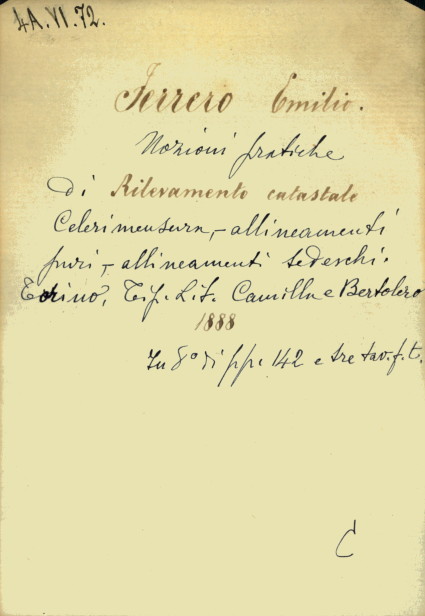 4A.VI.72.
Ferrero Emilio.
Nozioni pratiche
di Rilevamento catastale
Celerimensura, - allineamenti
puri, - allineamenti tedeschi.
Torino, Tip. Lit. Camilla e Bertolero
1888
In 8° di pp. 142 e tre tav. f. t.
C